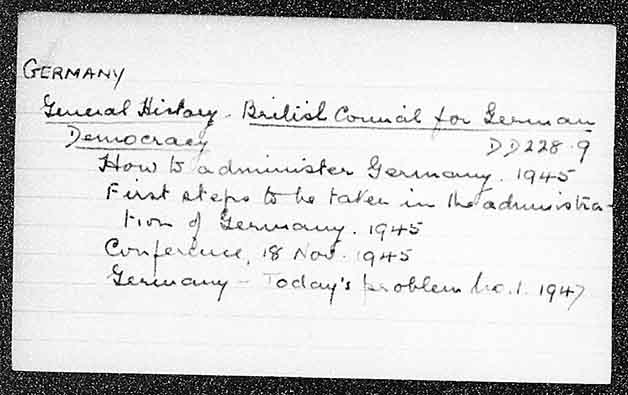 GERMANY
General History - British Council for German
Democracy DD228.9
How to administer Germany. 1945
First steps to be taken in the administra-
tion of Germany. 1945
Conference, 18 Nov. 1945
Germany - Today's problem No. 1. 1947